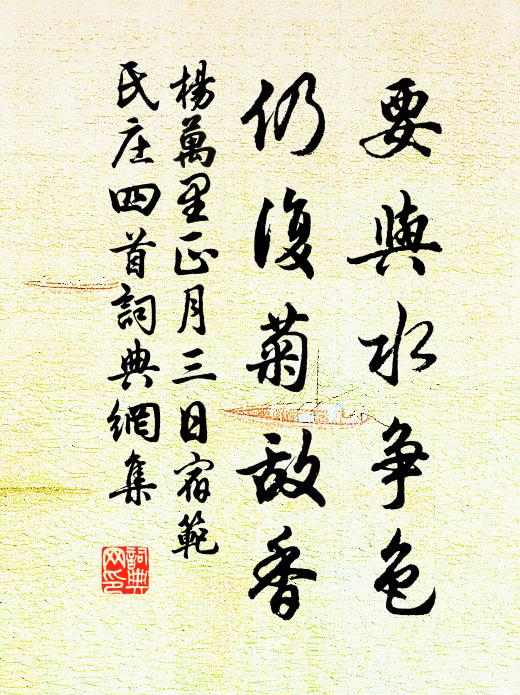 要與水爭色
仍復菊敵香
楊萬里正月三日宿範
氏庄四首詞典網集
詞典
网印